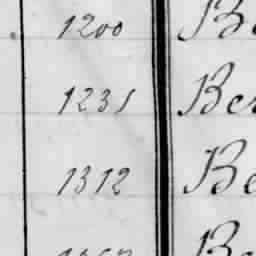 1200 Be
1231 Ber
1312 Be